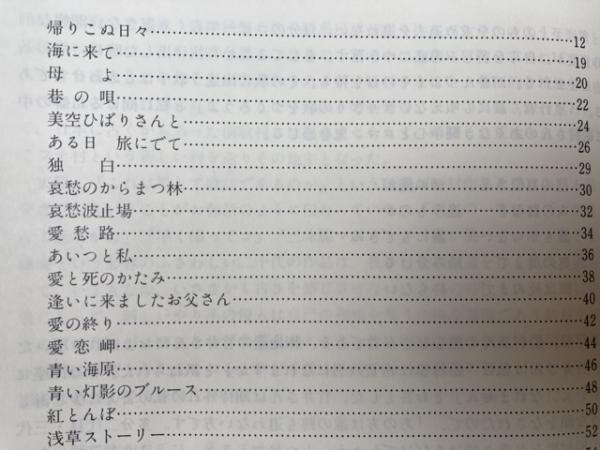 帰りこぬ日々……12
海に来て……19
母　よ……20
巷の唄……22
美空ひばりさんと……24
ある日　旅にでて……26
独　白……29
哀愁のからまつ林……30
哀愁波止場……32
愛愁路……34
あいつと私……36
愛と死のかたみ……38
逢いに来ましたお父さん……40
愛の終り……42
愛恋岬……44
青い海原……46
青い灯影のブルース……48
紅とんぼ……50
浅草ストーリー……52